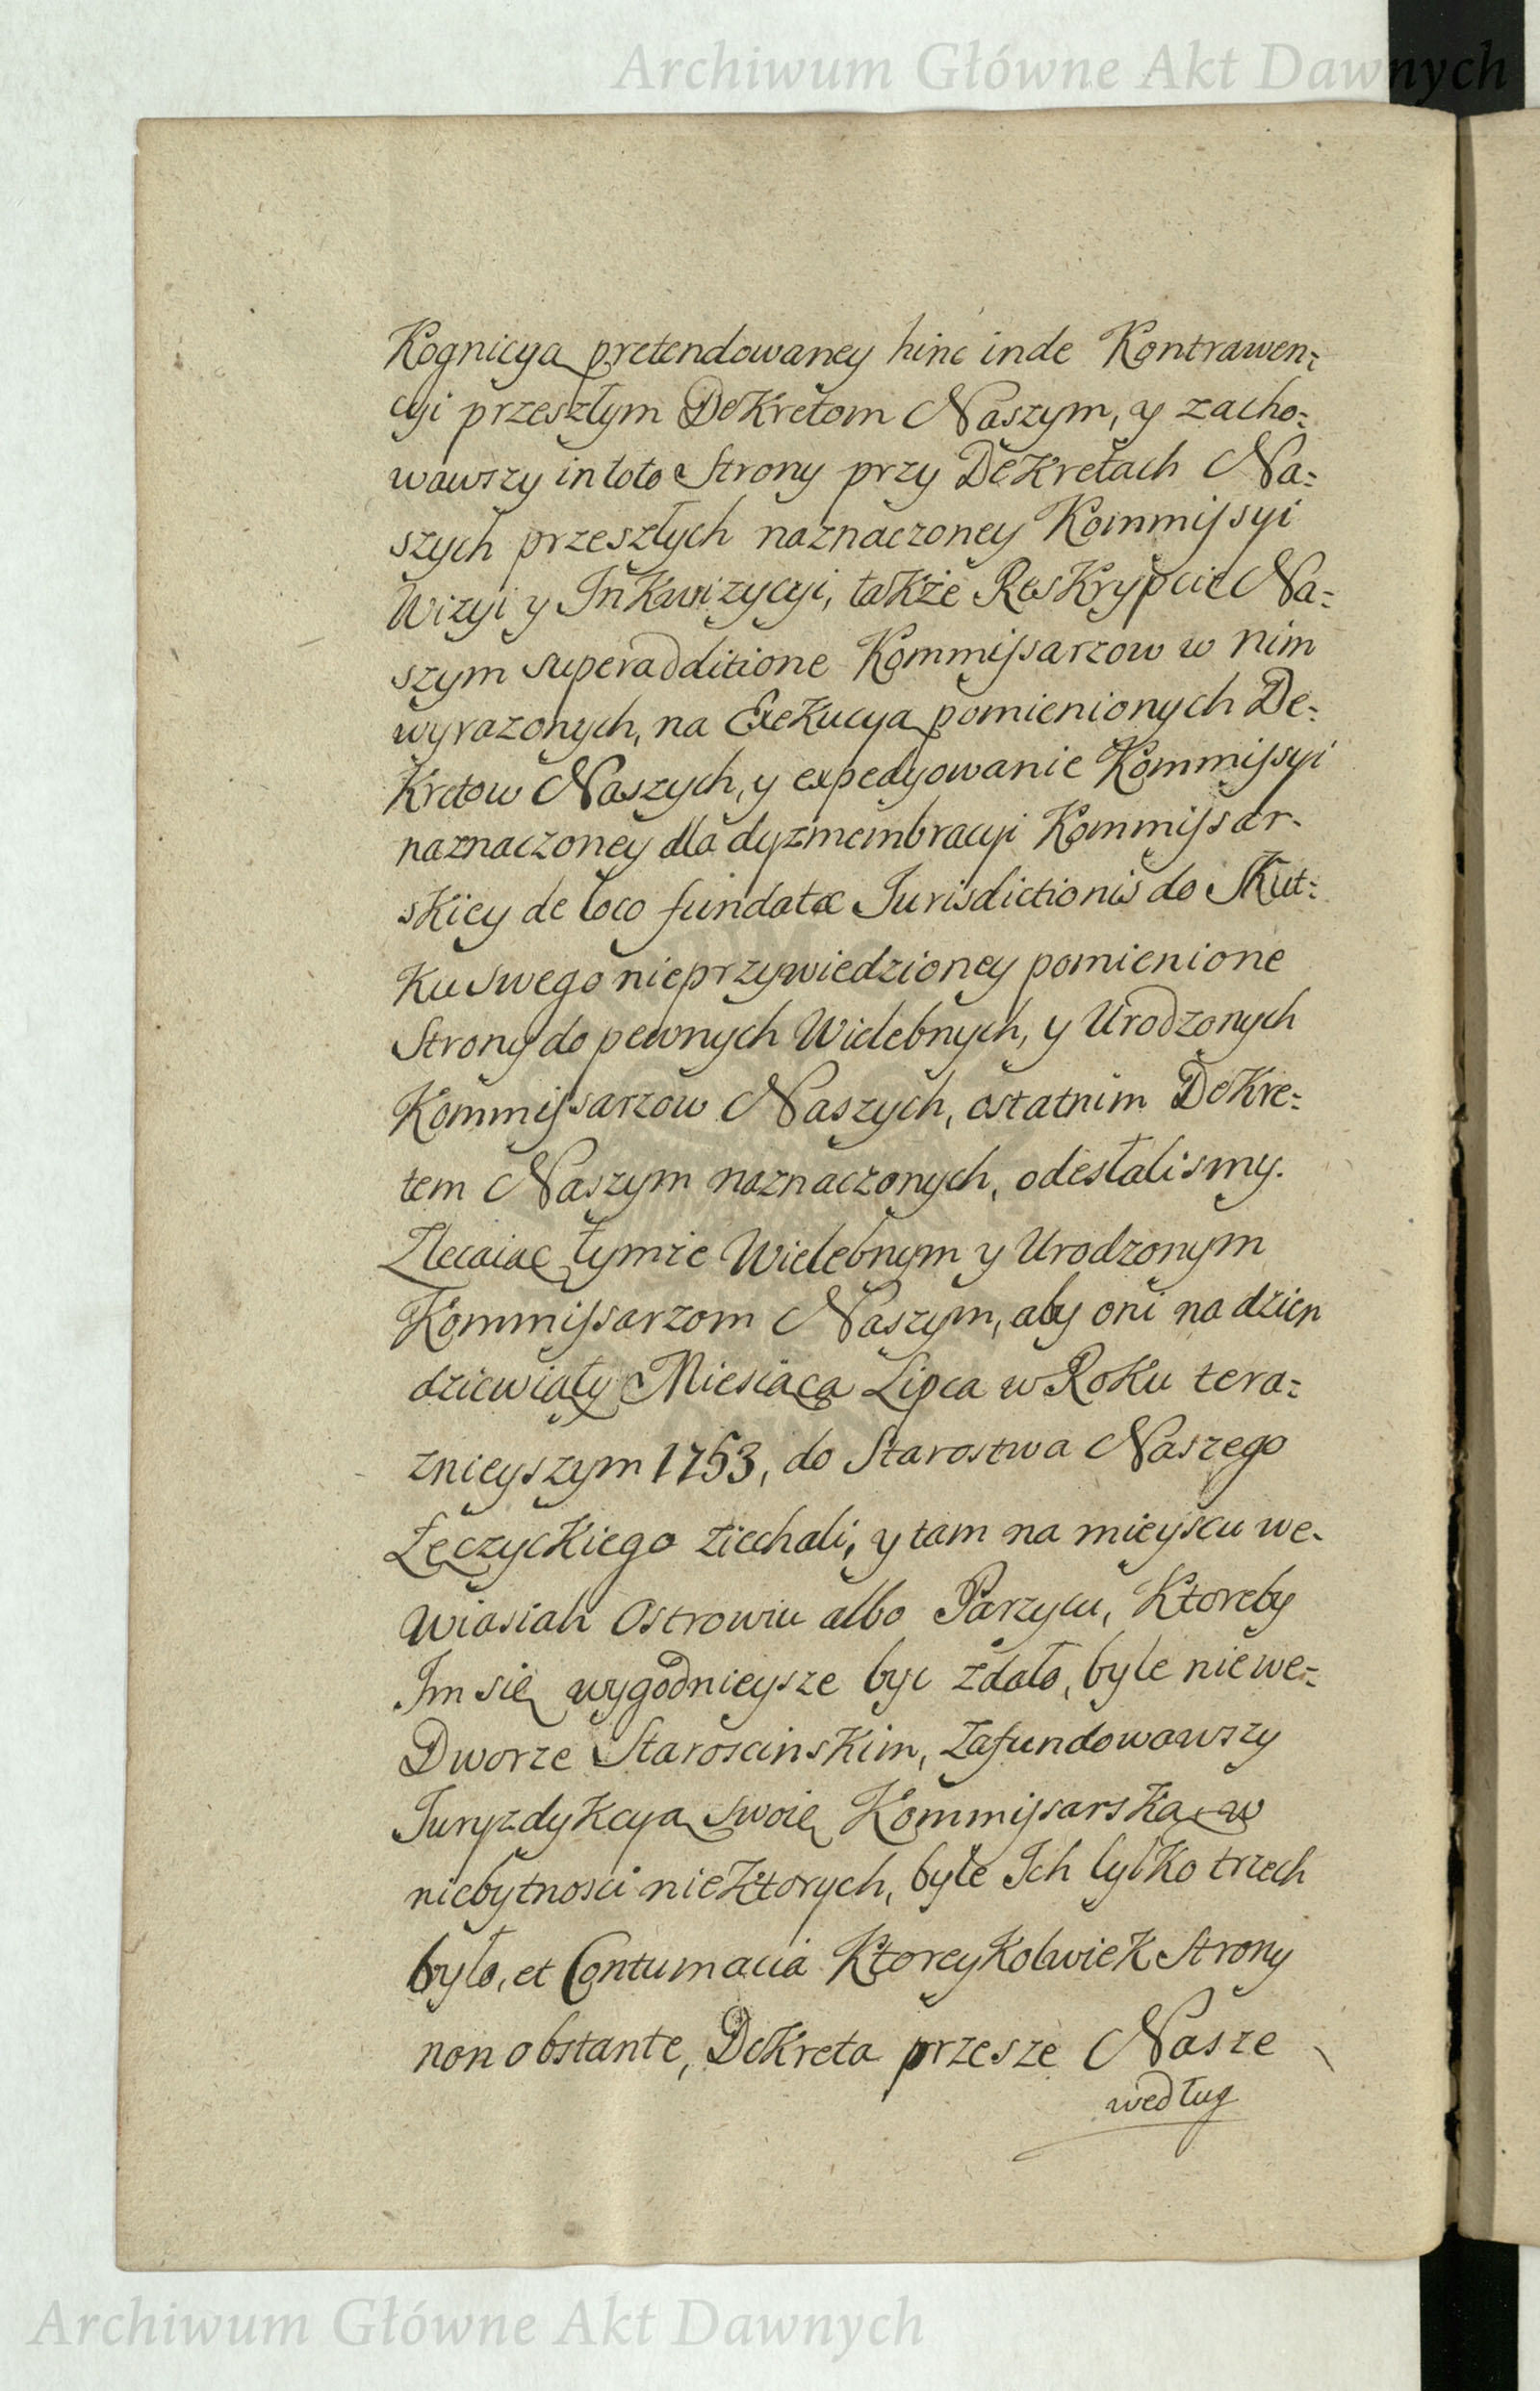 Archiwum Główne Akt Dawnych
Kognicyą pretendowaney hinc inde Kontrawen:
cyi przeszłym Dekretom Naszym, y zacho:
wawszy in toto Strony przy Dekretach Na:
szych przeszłych naznaczoney Kommissyi
Wizyi y Inkwizycyi, także Reskrypcie Na:
szym superadditione Kommissarzow w nim
wyrazonych, na Exekucyą pomienionych De:
kretow Naszych, y expedyowanie Kommissyi
naznaczoney dla dyzmembracyi Kommissar-
skiey de loco fundatæ Jurisdictionis do Skut:
ku swego nieprzywiedzioney pomienione
Strony do pewnych Wielebnych, y Urodzonych
Kommissarzow Naszych, ostatnim Dekre:
tem Naszym naznaczonych, odesłalismy.
Zlecaiąc tymże Wielebnym y Urodzonym
Kommissarzom Naszym, aby oni na dzien
dziewiąty Miesiąca Lipca w Roku tera:
znieyszym 1753, do Starostwa Naszego
Łęczyckiego ziechali, y tam na mieyscu we-
Wiasiah Ostrowiu albo Parzycu, ktoreby
Im się wygodnieysze byc zdało, byle nie we:
Dworze Staroscinskim, zafundowawszy
Juryzdykcyą swoię Kommissarską w
niebytnosci niektorych, byle Ich tylko trzech
było, et Contumacia ktoreykolwiek Strony
non obstante, Dekreta przesze Nasze
według
Archiwum Główne Akt Dawnych